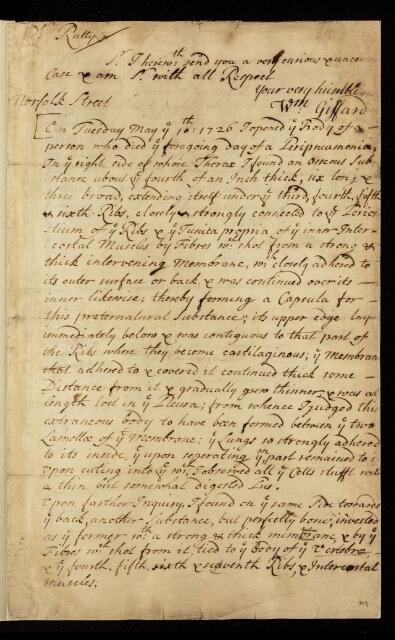 Dr Rutty
Sr. I herewth send you a very curious & uncom̄
Case & am Sr. with all Respect
Your very humble
Norfolk Street
Wm Giffard
On Tuesday May ye 10th: 1726 I opened ye Body of a
person who died ye foregoing day of a Peripneumonia;
In ye right side of whose Thorax I found an Osseous Sub-
stance about ye fourth of an Inch thick, six long &
three broad, extending itself under ye third, fourth, fifth
& sixth Ribs, closely & strongly connected to ye Perios-
tium of ye Ribs & ye Tunica propria of ye inner Inter-
costal Muscles by Fibres wch shot from a strong &
thick intervening Membrane, wch closely adhered to
its outer surface or back, & was continued over its
inner likewise; thereby forming a Capsula for
this preternatural Substance; its upper edge lay
immediately below & was contiguous to that part of
the Ribs where they become cartilaginous; ye Membran
that adhered to & covered it continued thick some
Distance from it & gradually grew thinner & was at
length lost in ye Pleura; from whence I judged this
extraneous body to have been formed between ye two
Lamellæ of ye Membrane: ye Lungs so strongly adhered
to its inside, yt upon seperating ym part remained to it
upon cuting into ye wch I observed all ye Cells stufft with
a thin but somewhat digested Pus.
Upon farther Inquiry I found on ye same side towards
ye back, another Substance, but perfectly bone; invested
as ye former wth a strong & thick membrane & by ye
Fibres wch shot from it, tied to ye body of ye Vertebre
& ye fourth, fifth, sixth & seventh Ribs, & Intercostal
muscles.